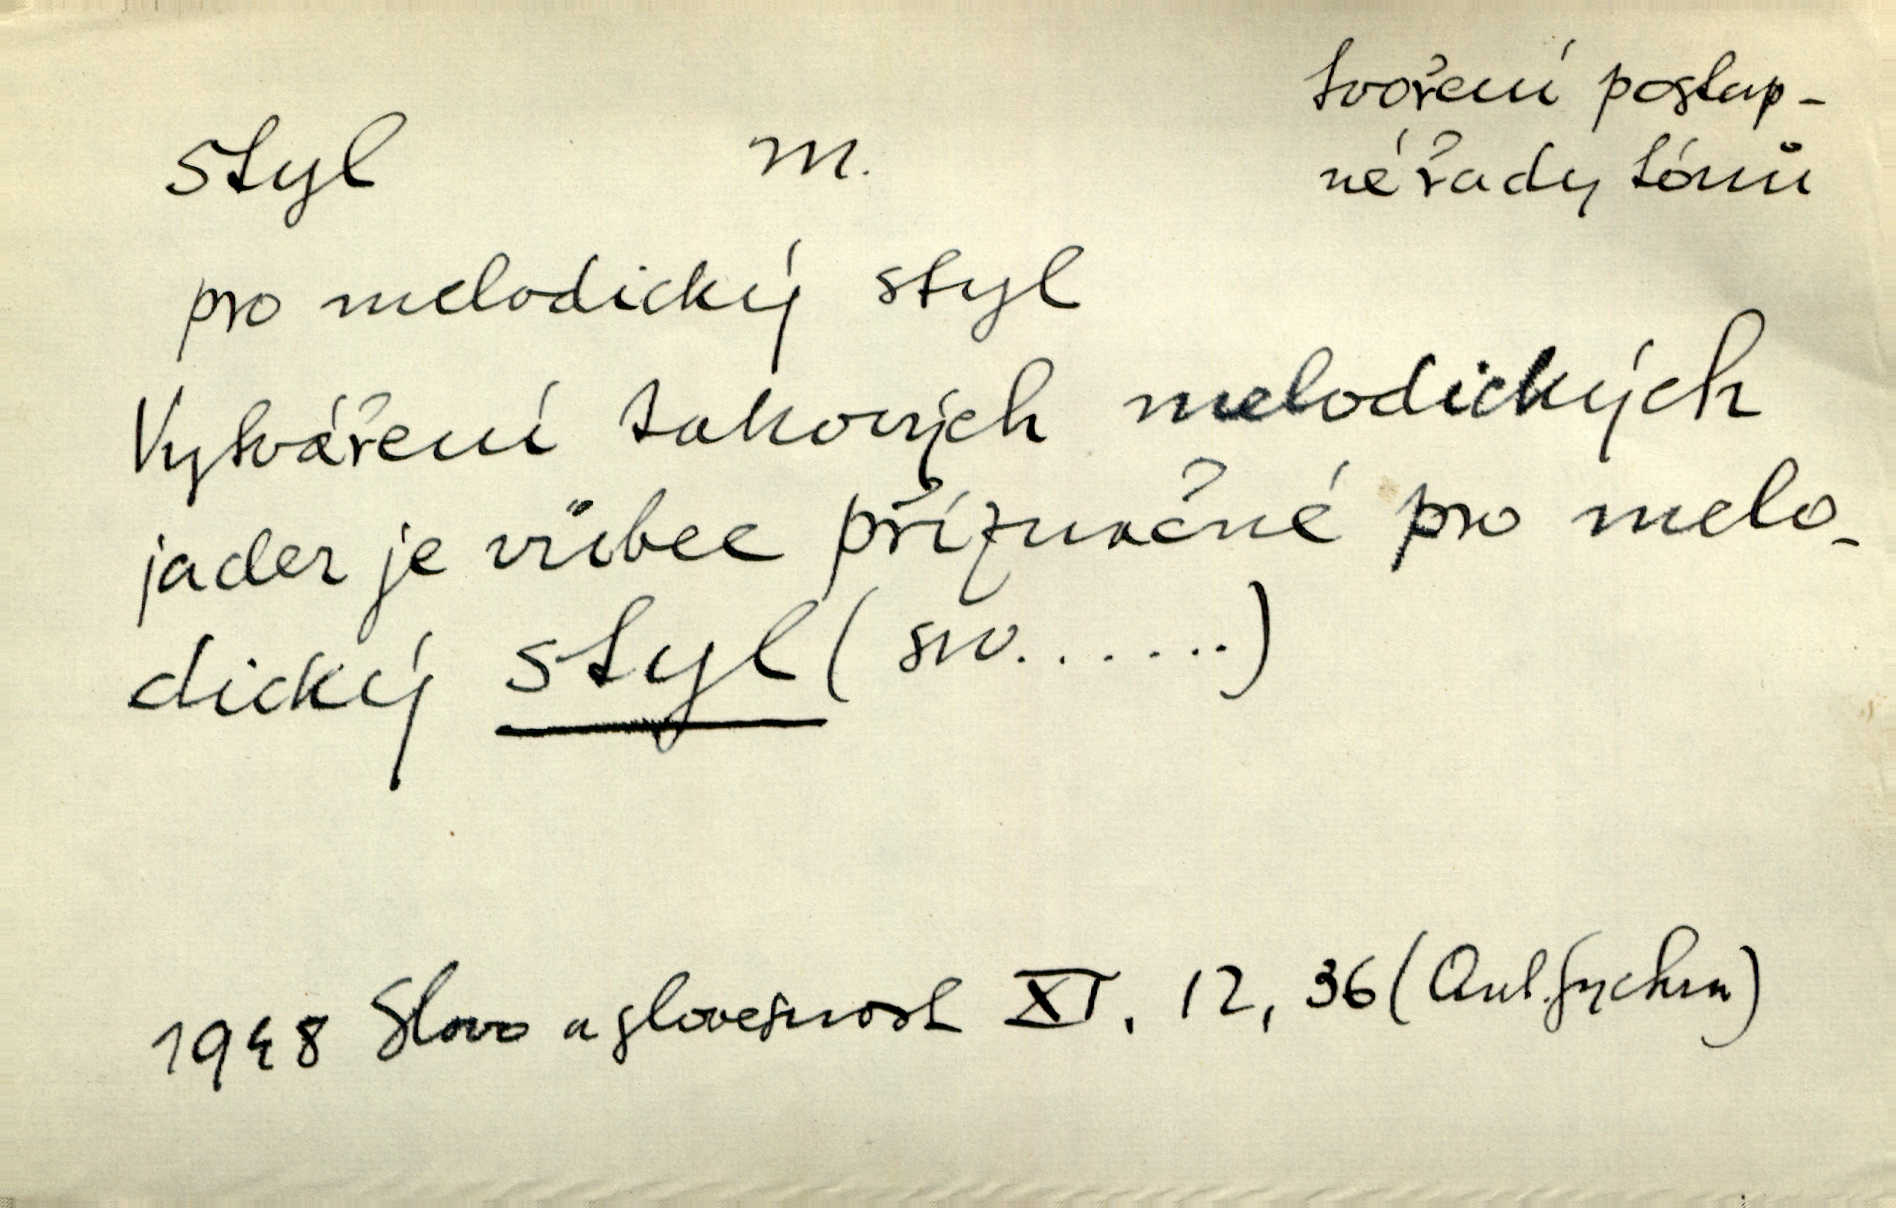 tvoření postup-
né řady tónů
styl m.
pro melodický styl
Vytváření takových melodických
jader je vůbec příznačné pro melo-
dický styl (srv.......)
1948 Slovo a slovesnost XI. 12, 36 (Ant. Sychra)